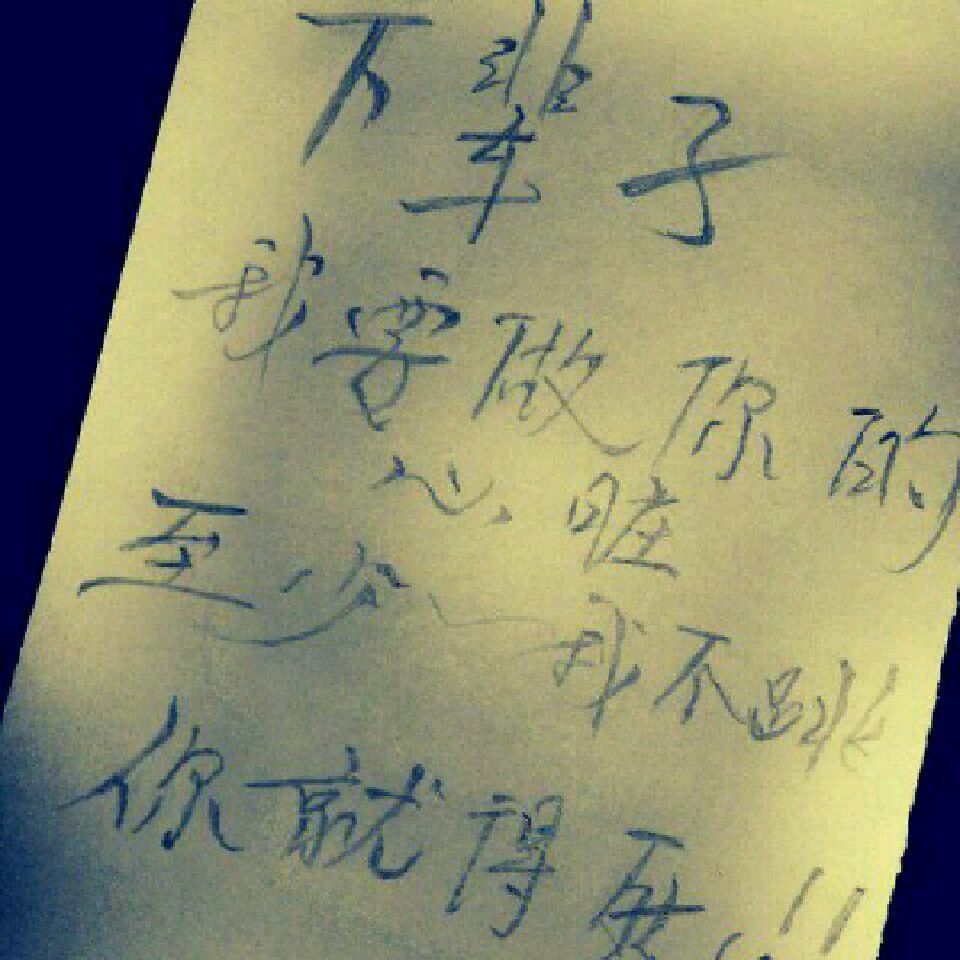 下辈子
我要做你的
心脏
至少我不跳
你就得死!!